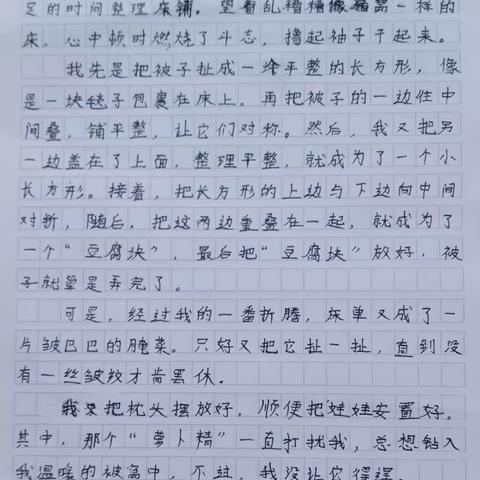 足的时间整理床铺。望着乱糟糟像猪窝一样的
床，心中顿时燃烧了斗态，撸起袖子干起来。
我先是把被子扯成一个平整的长方形，像
是一块毯子包裹在床上。再把被子的一边往中
间叠，铺平整，让它们对称。然后，我又把另
一边盖在了上面，整理平整，就成为了一个小
长方形。接着，把长方形的上边与下边向中间
对折，随后，把这两边重叠在一起，就成为了
一个“豆腐块”，最后把“豆腐块”放好，被
子就算是弄完了。
可是，经过我的一番折腾，床单又成了一
片皱巴巴的腌菜。只好又把它扯一扯，直到没
有一丝皱纹才肯罢休。
我又把枕头摆放好，顺便把娃娃安置好。
其中，那个“萝卜精”一直打扰我，总想钻入
我温暖的被窝中，不过，我没让它得逞。